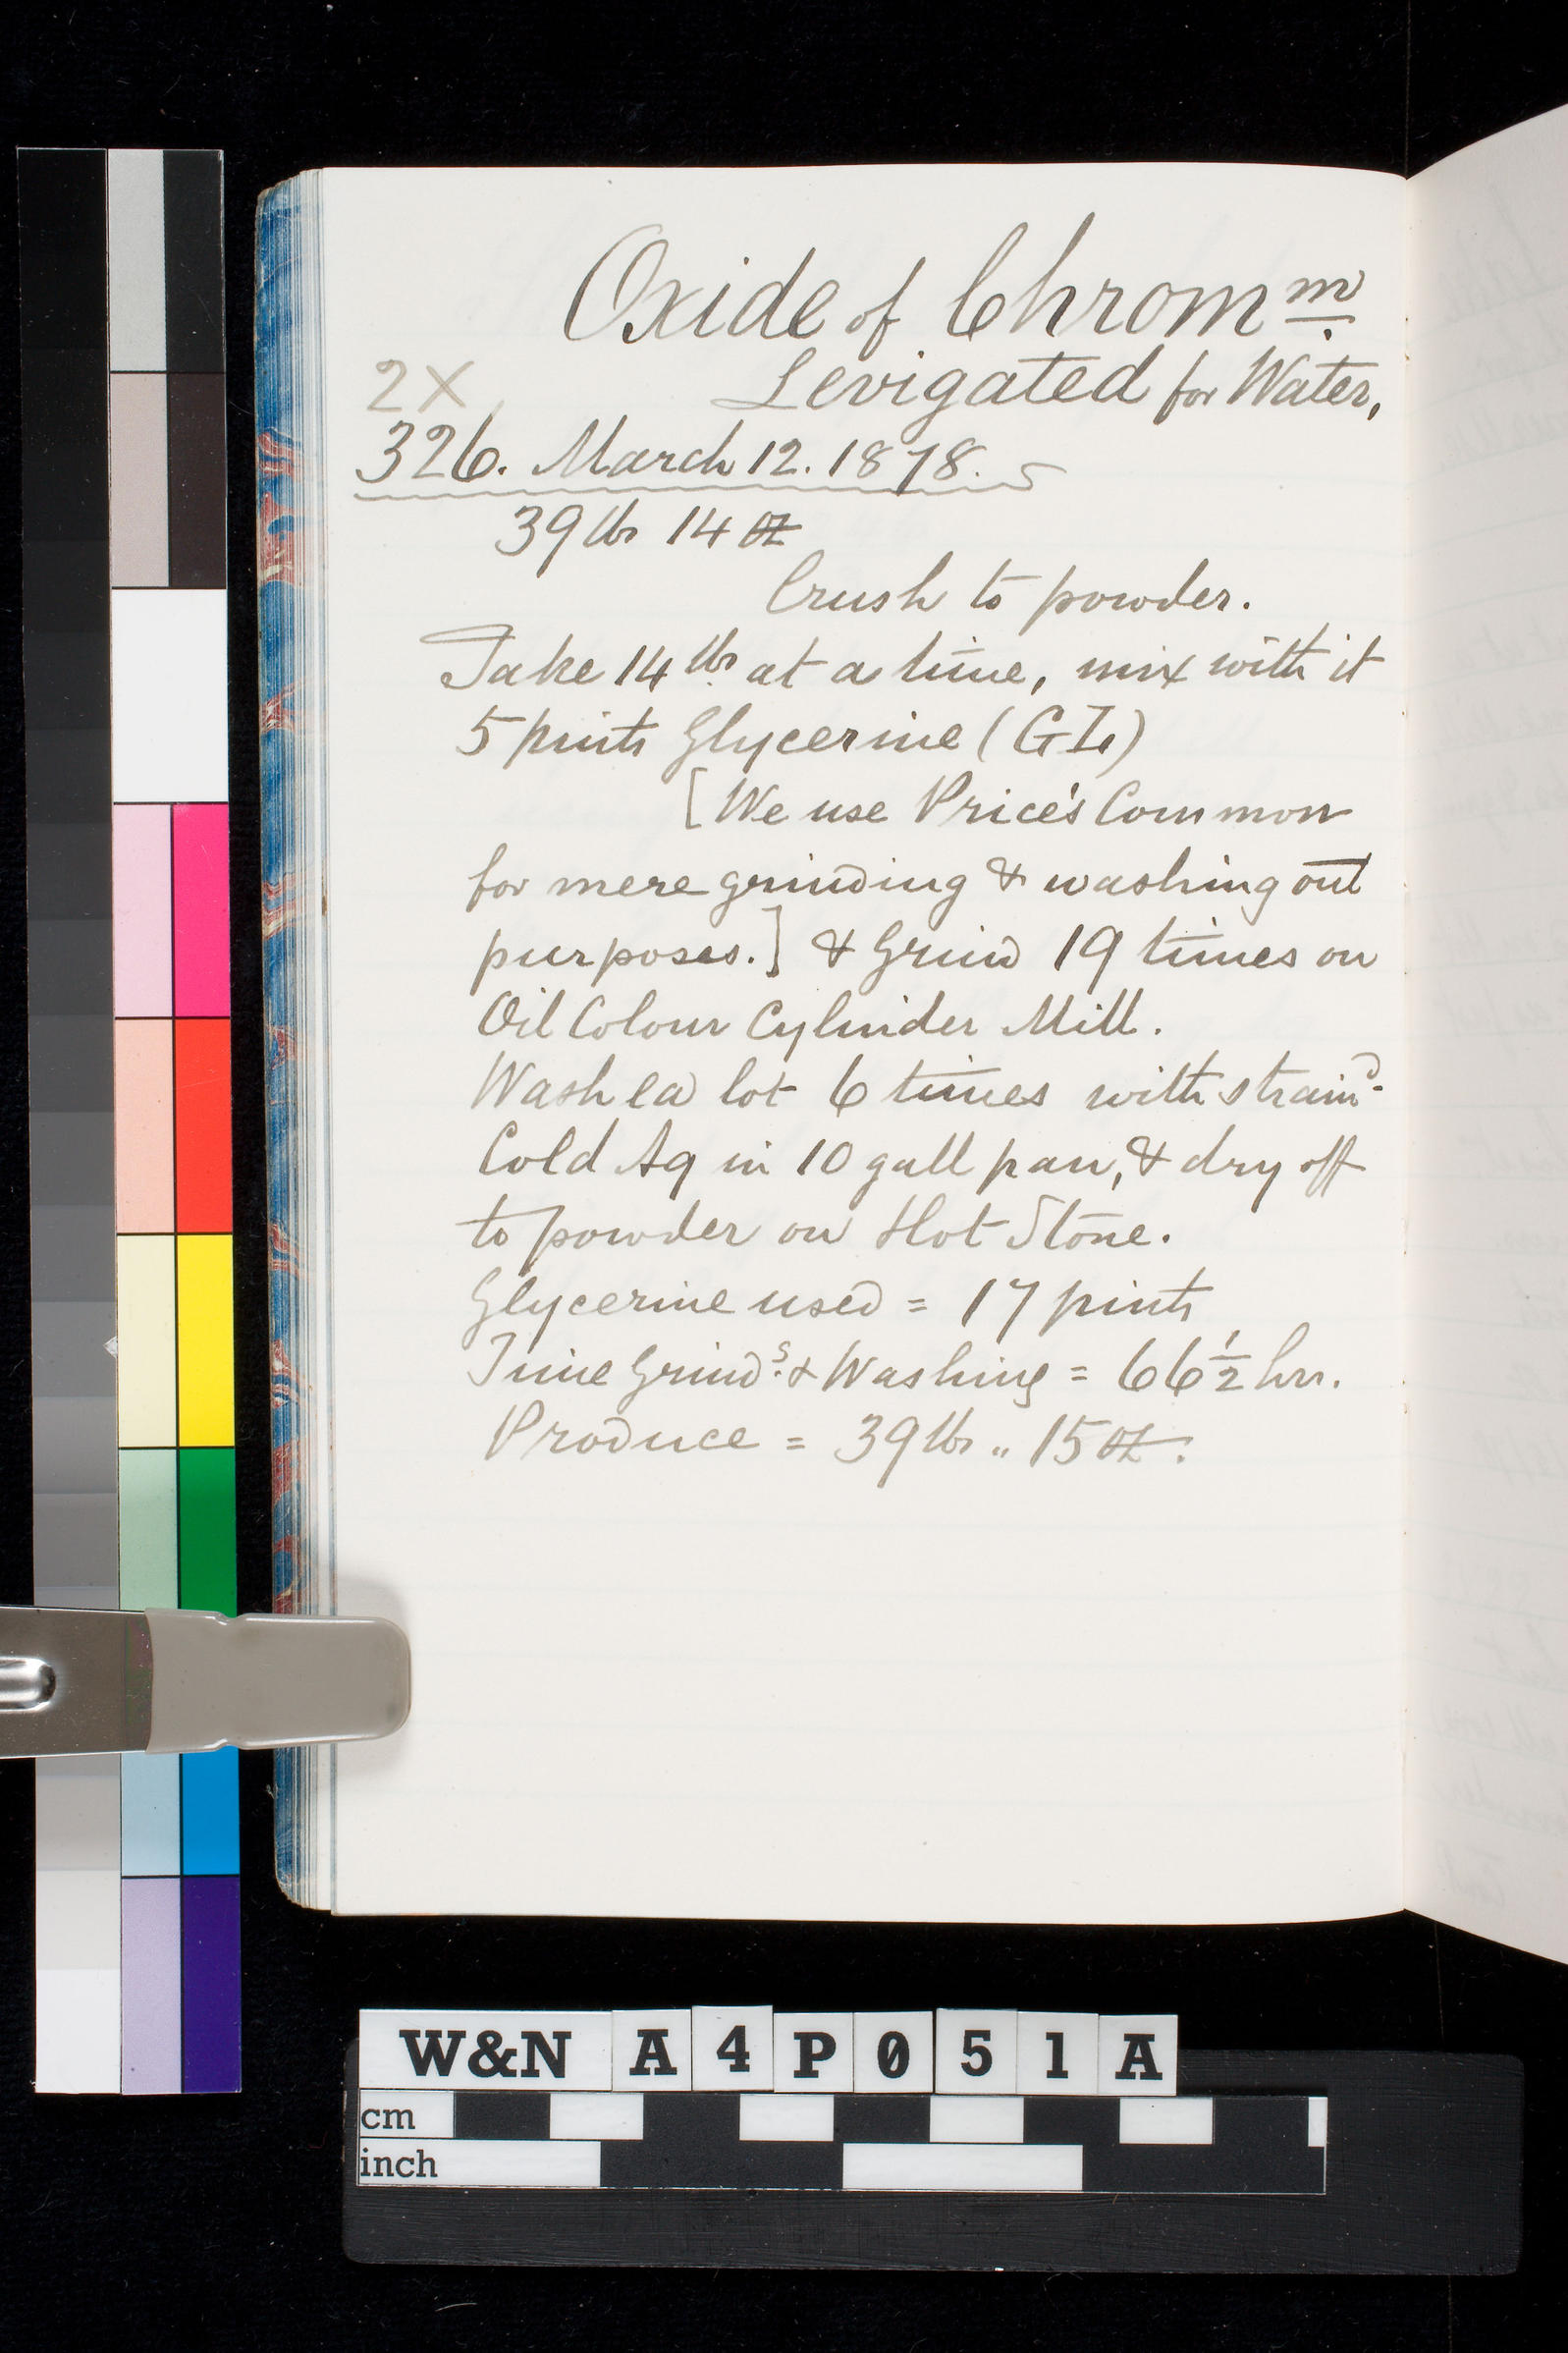 Oxide of Chromm.
Levigated for Water,
2X
326. March 12. 1878.
39 lbs 14 oz
Crush to powder.
Take 14 lbs at a time, mix with it
5 pints Glycerine (GL)
[We use Price's Common
for mere grinding & washing out
purposes.] & Grind 19 times on
Oil Colour Cylinder Mill.
Wash ea lot 6 times with straind
Cold Aq in 10 gall pan, & dry off
to powder on Hot Stone.
Glycerine used = 17 pints
Time Grindg. & Washing = 66 1/2 hrs.
Produce = 39 lbs „ 15 oz.
W&N A4P051A
cm
inch